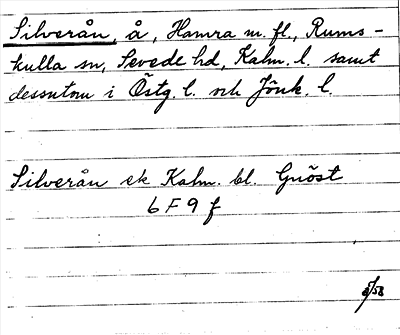 Silverån, å, Hamra m. fl., Rums-
kulla sn, Sevede hd, Kalm. l. samt
dessutom i Östg. l. och Jönk. l.
Silverån ek Kalm. bl. Gnöst
6 F 9 f